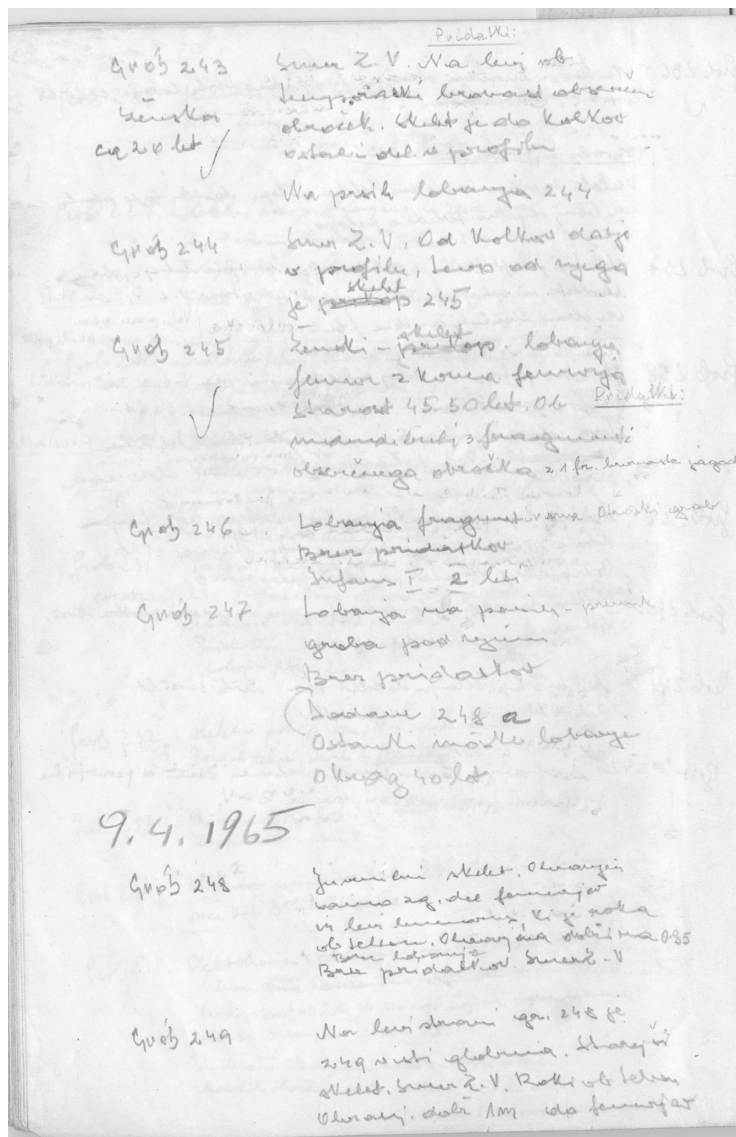 Pridatki:
Grob 243 Smer Z.V. Na levi ob
ženska
obroček. Skelet je do kolkov
ca 20 let ostali del v profilu
Na prsih lobanja 244
Grob 244 Smer Z.V. Od kolkov dalje
v profilu, levo od njega
je skelet 245
Grob 245 Ženski - skelet - lobanja
femur
starost 45 50 let. Ob
Pridatki:
mandibuli 3 fragmenti
obsenčnega obročka z 1 fr. jagode
Grob 246 Lobanja Otroški grob
Brez pridatkov
Infans I 2 leti
Grob 247 Lobanja na
groba pod njim
Brez pridatkov
Dodano 248 a
Ostanki moške lobanje
Okrog 40 let
9.4.1965
Grob 248 skelet. Ohranjen
samo zg. del femurjev
in levi humerus, ki je
ob telesu. Ohranjena dolžina 0.85
Brez lobanje
Brez pridatkov. Smer Z-V
Grob 249 Na levi strani gr. 248 je
249 v isti globini. Starejši
skelet. Smer Z.V. Roki ob telesu
Ohranj. dolž 1m do femurjev